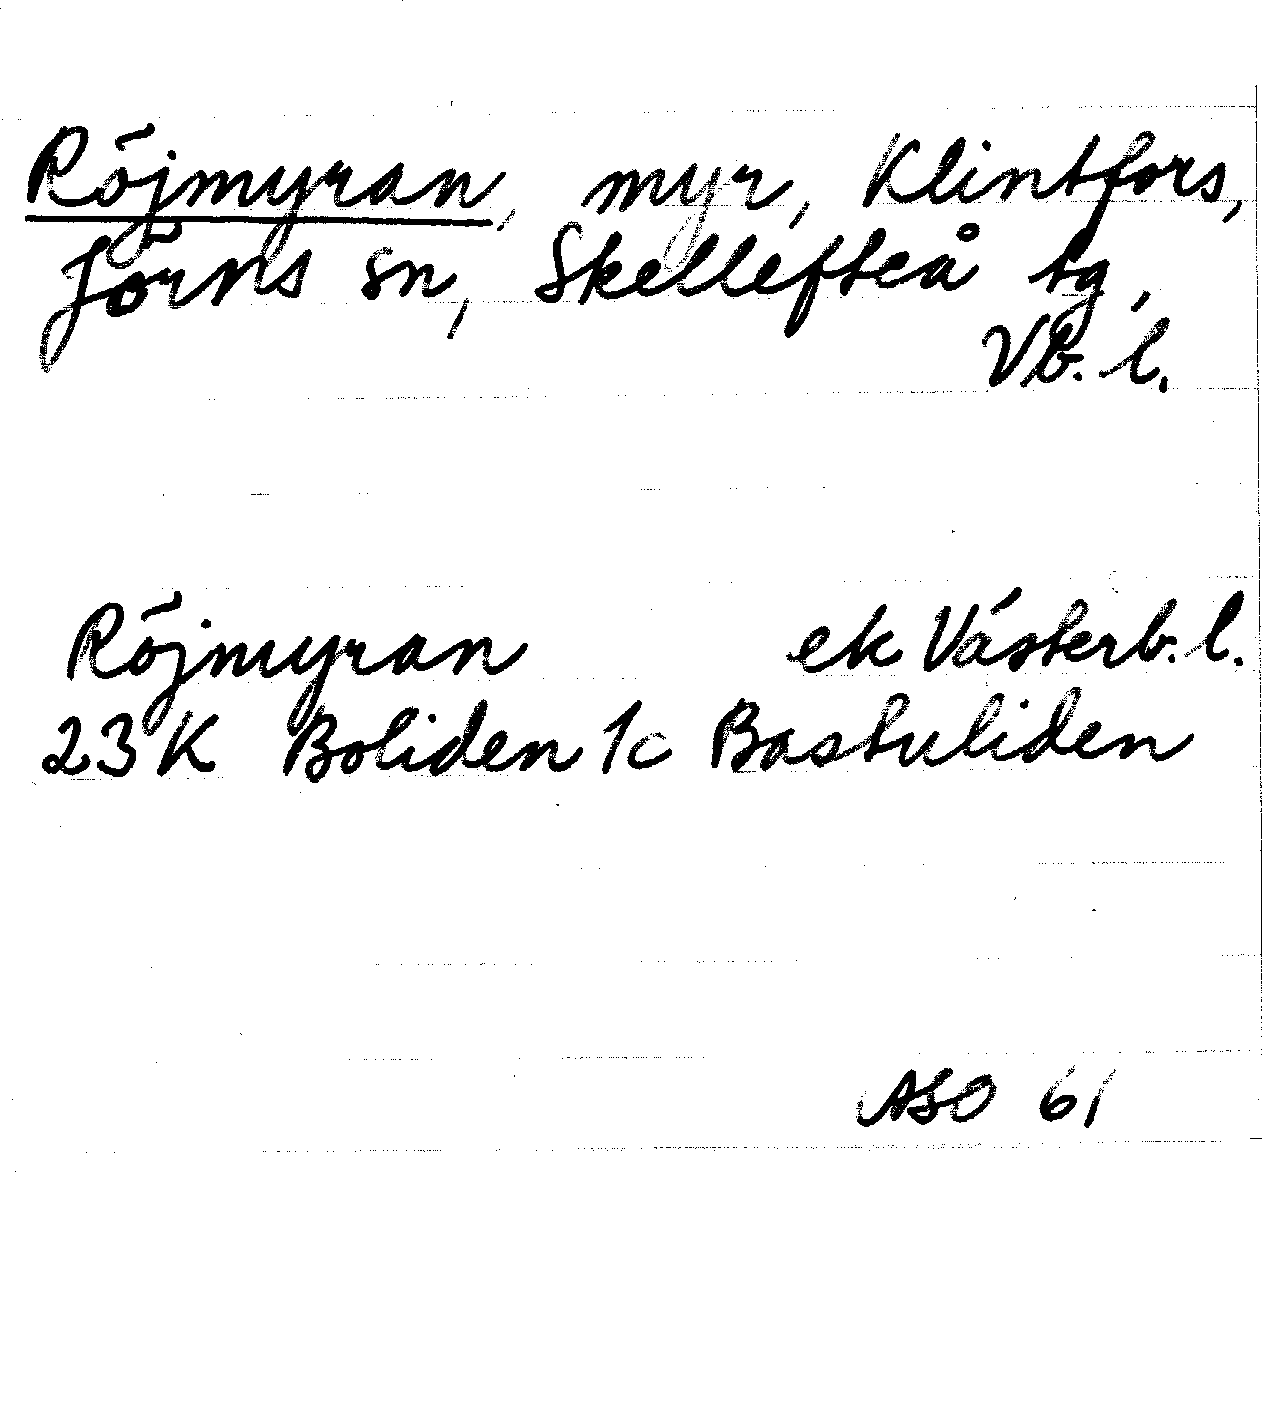 Röjmyran, myr, Klintfors,
Jörns sn, Skellefteå tg,
Vb. l.
Röjmyran ek Västerb. l.
23 K Boliden 1c Bastuliden
ASO 61